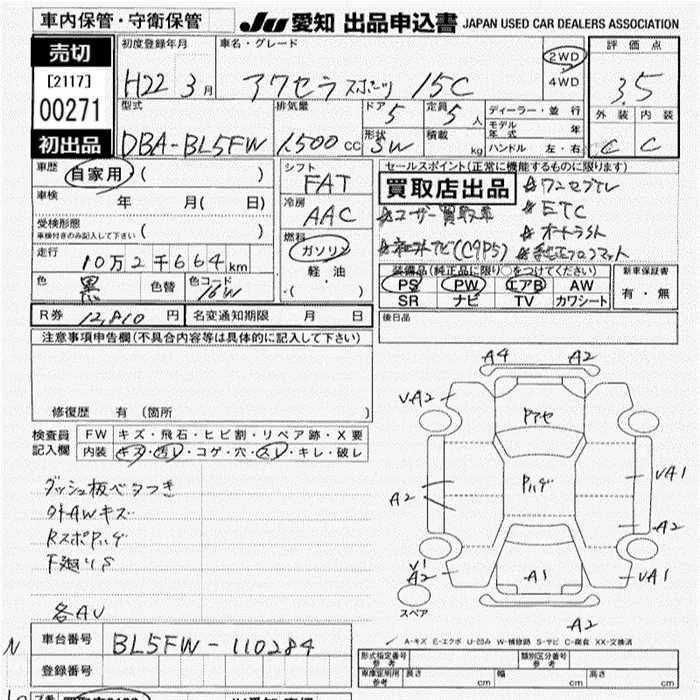 車内保管・守衛保管
JU 愛知 出品申込書 JAPAN USED CAR DEALERS ASSOCIATION
売切
[2117]
00271
初出品
初度登録年月
H22 3月
車名・グレード
アクセラスポーツ 15C
2WD
4WD
評価点
3.5
外装 内装
C C
型式
DBA-BL5FW
排気量
1.500 CC
ドア
5
定員
5人
形状
SW
積載
kg
ディーラー・並行
モデル年式 年
ハンドル 左・右
車歴
自家用 ( )
車検 年 月( 日)
受検形態
車検付きのみ記入して下さい ( )
走行
10万2千664km
色
黒
色替
色コード
16W
シフト
FAT
冷房
AAC
燃料
ガソリン
軽・油
・( )
セールスポイント(正常に機能するものに限ります)
買取店出品
☆ワンセグTV
☆ETC
☆ユーザー買取車
☆オートライト
☆社外ナビ(C9P5)
☆純正フロアマット
装備品(純正品に限り○をつけてください)
PS PW エアB AW
SR ナビ TV カワシート
新車保証書
有・無
R券 12,810円
名変通知期限 月 日
後日品
注意事項申告欄(不具合内容等は具体的に記入して下さい)
修復歴 有 (箇所 )
検査員記入欄
FW キズ・飛石・ヒビ割・リペア跡・X要
内装 キズ・汚レ・コゲ・穴・スレ・キレ・破レ
ダッシュ板ベタつき
外AWキズ
RスポPハゲ
下廻りS
各AU
A4 A2
VA2
Pアセ
Pハゲ
A2
VA1
A2
V1
A2
A1
VA1
スペア
A2
A-キズ E-エクボ U-凹み W-補修跡 S-サビ C-腐食 XX-交換済
N
車台番号
BL5FW-110284
登録番号
形式指定番号
参考
類別区分番号
参考
車庫証明用
参考
長さ cm
幅 cm
高さ cm